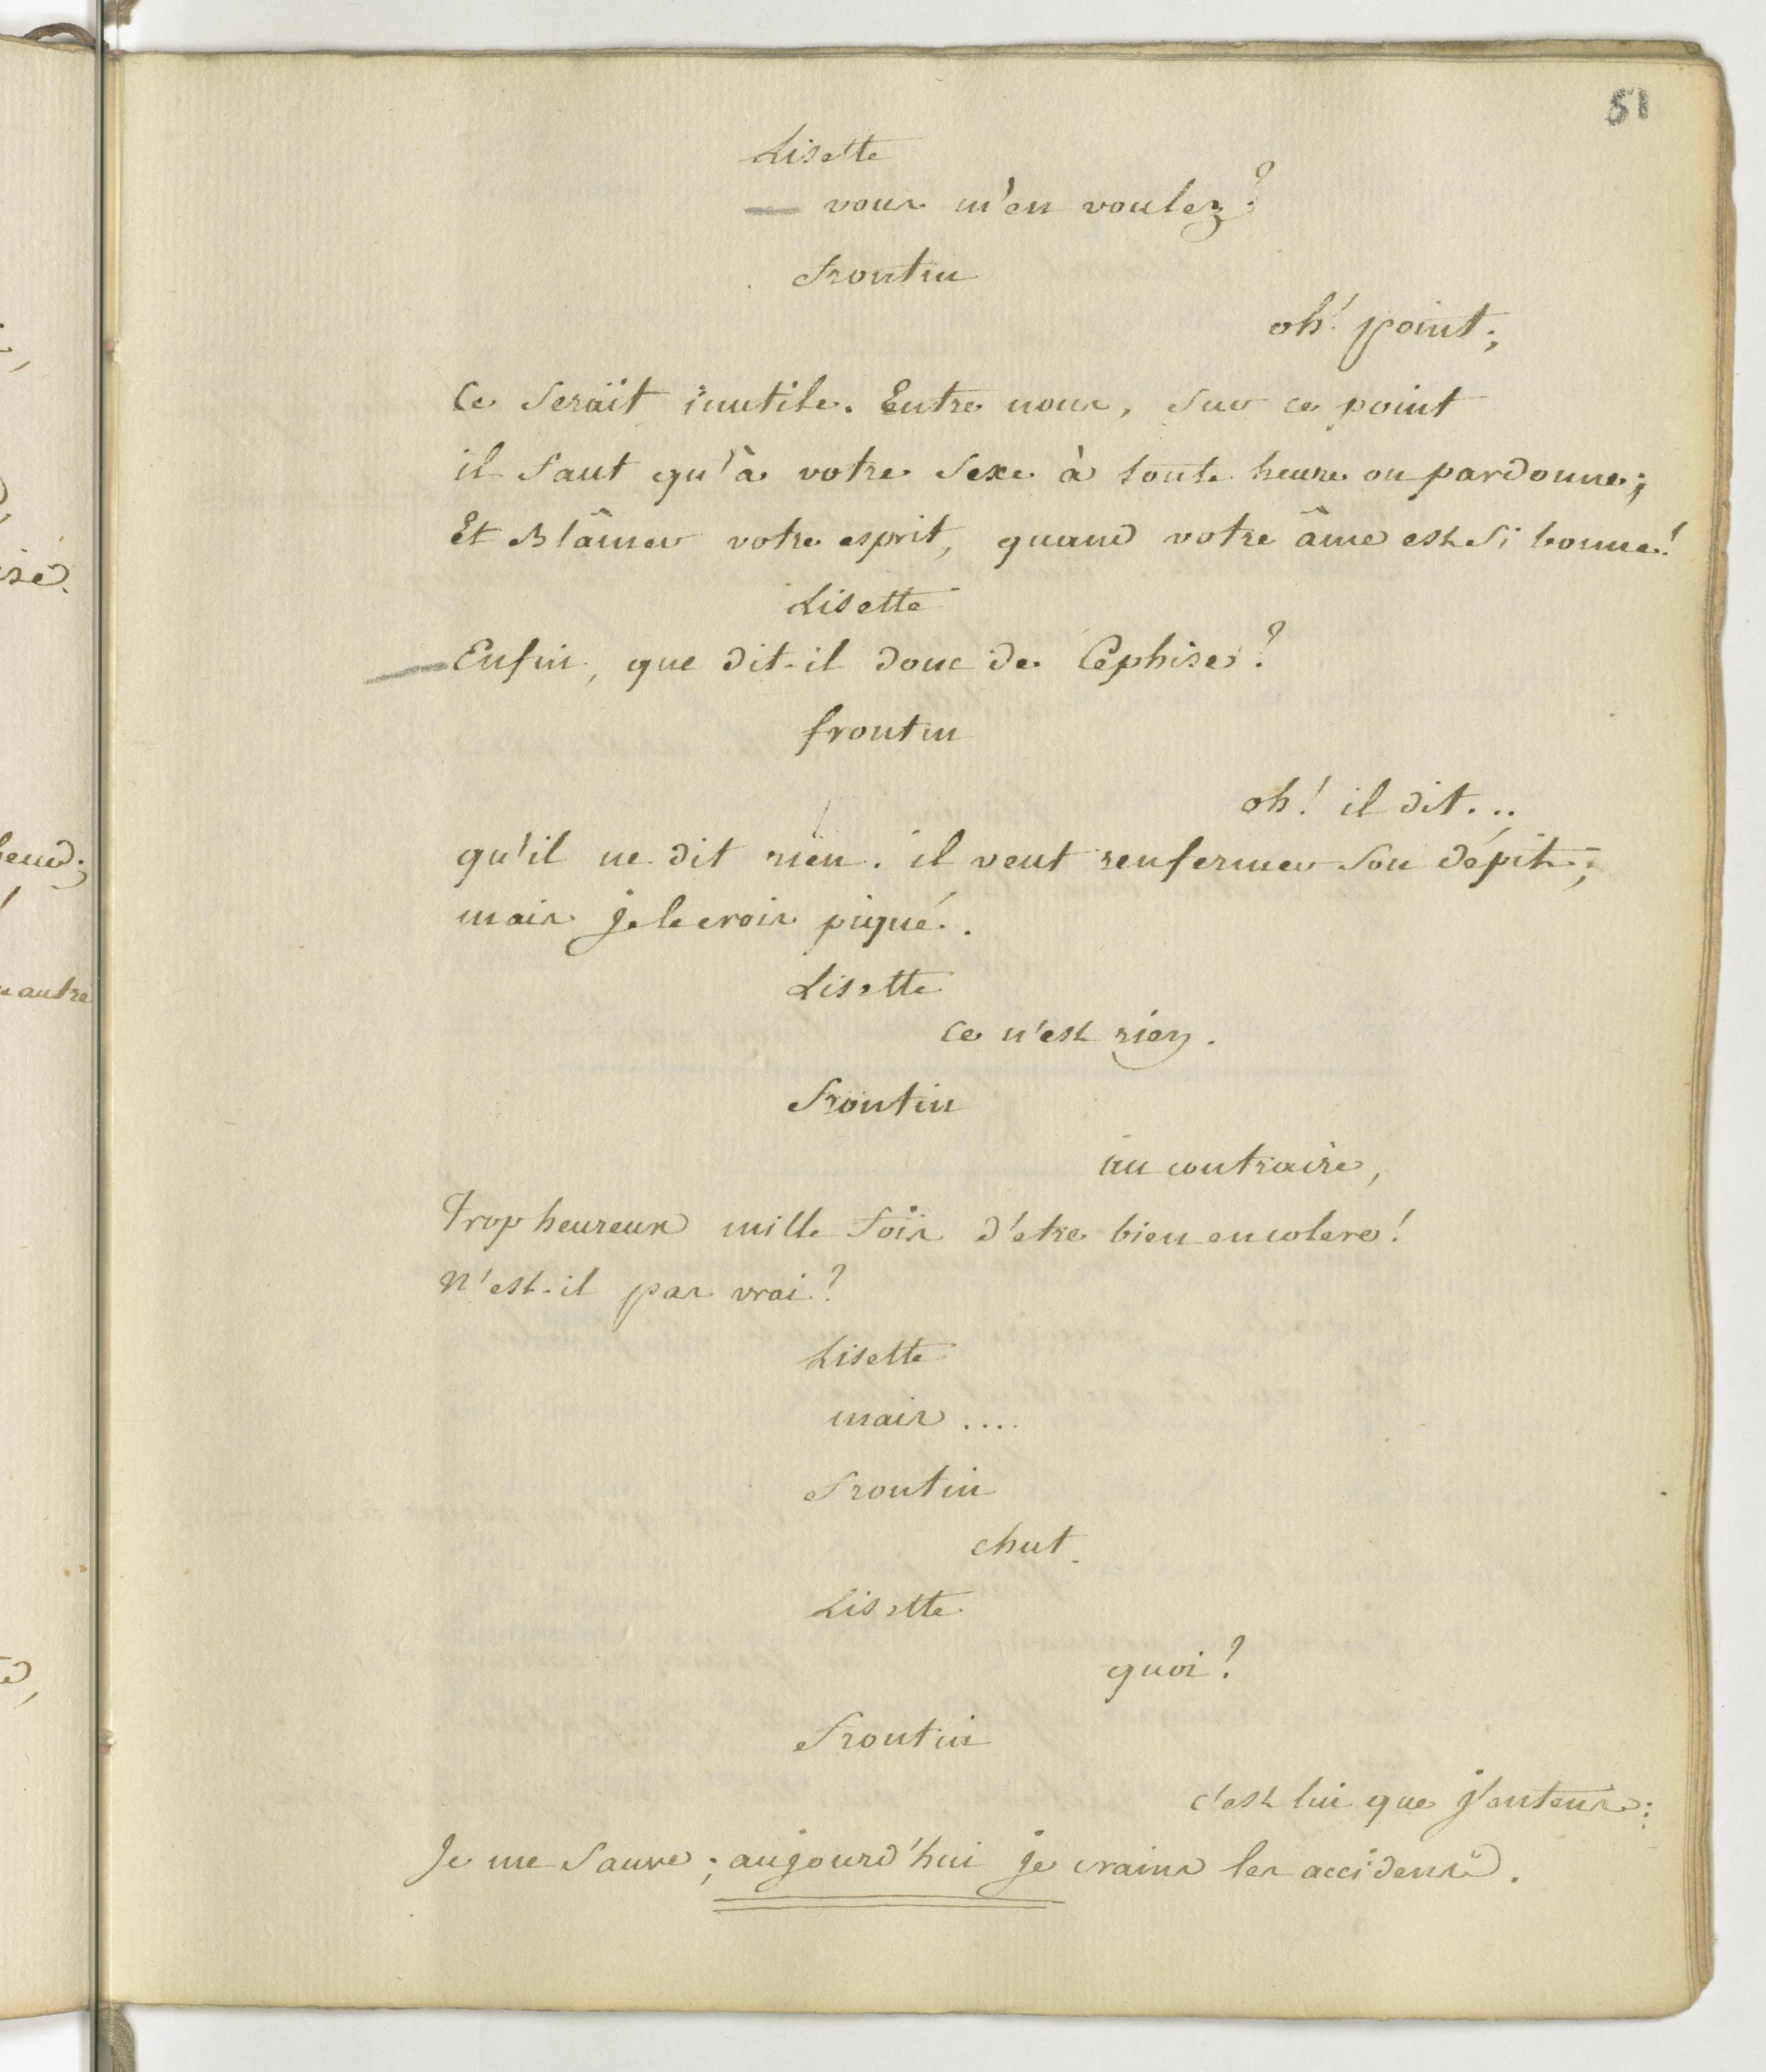 51
Lisette
vous m'en voulez?
frontin
oh! point;
Ce serait inutile. Entre nous, sur ce point
il faut qu'à votre sexe à toute heure on pardonne;
Et Blâmer votre esprit, quand votre âme est si bonne!
Lisette
Enfin, que dit-il donc de Céphise?
frontin
oh! il dit...
qu'il ne dit rien. il veut renfermer son dépit;
mais je le crois piqué.
Lisette
Ce n'est rien.
frontin
au contraire,
Trop heureux mille fois d'etre bien en colere!
N'est-il pas vrai?
Lisette
mais ....
frontin
chut.
Lisette
quoi!
frontin
c'est lui que j'entens:
Je me sauve; aujourd'hui je crains les accidens.
ise
autre